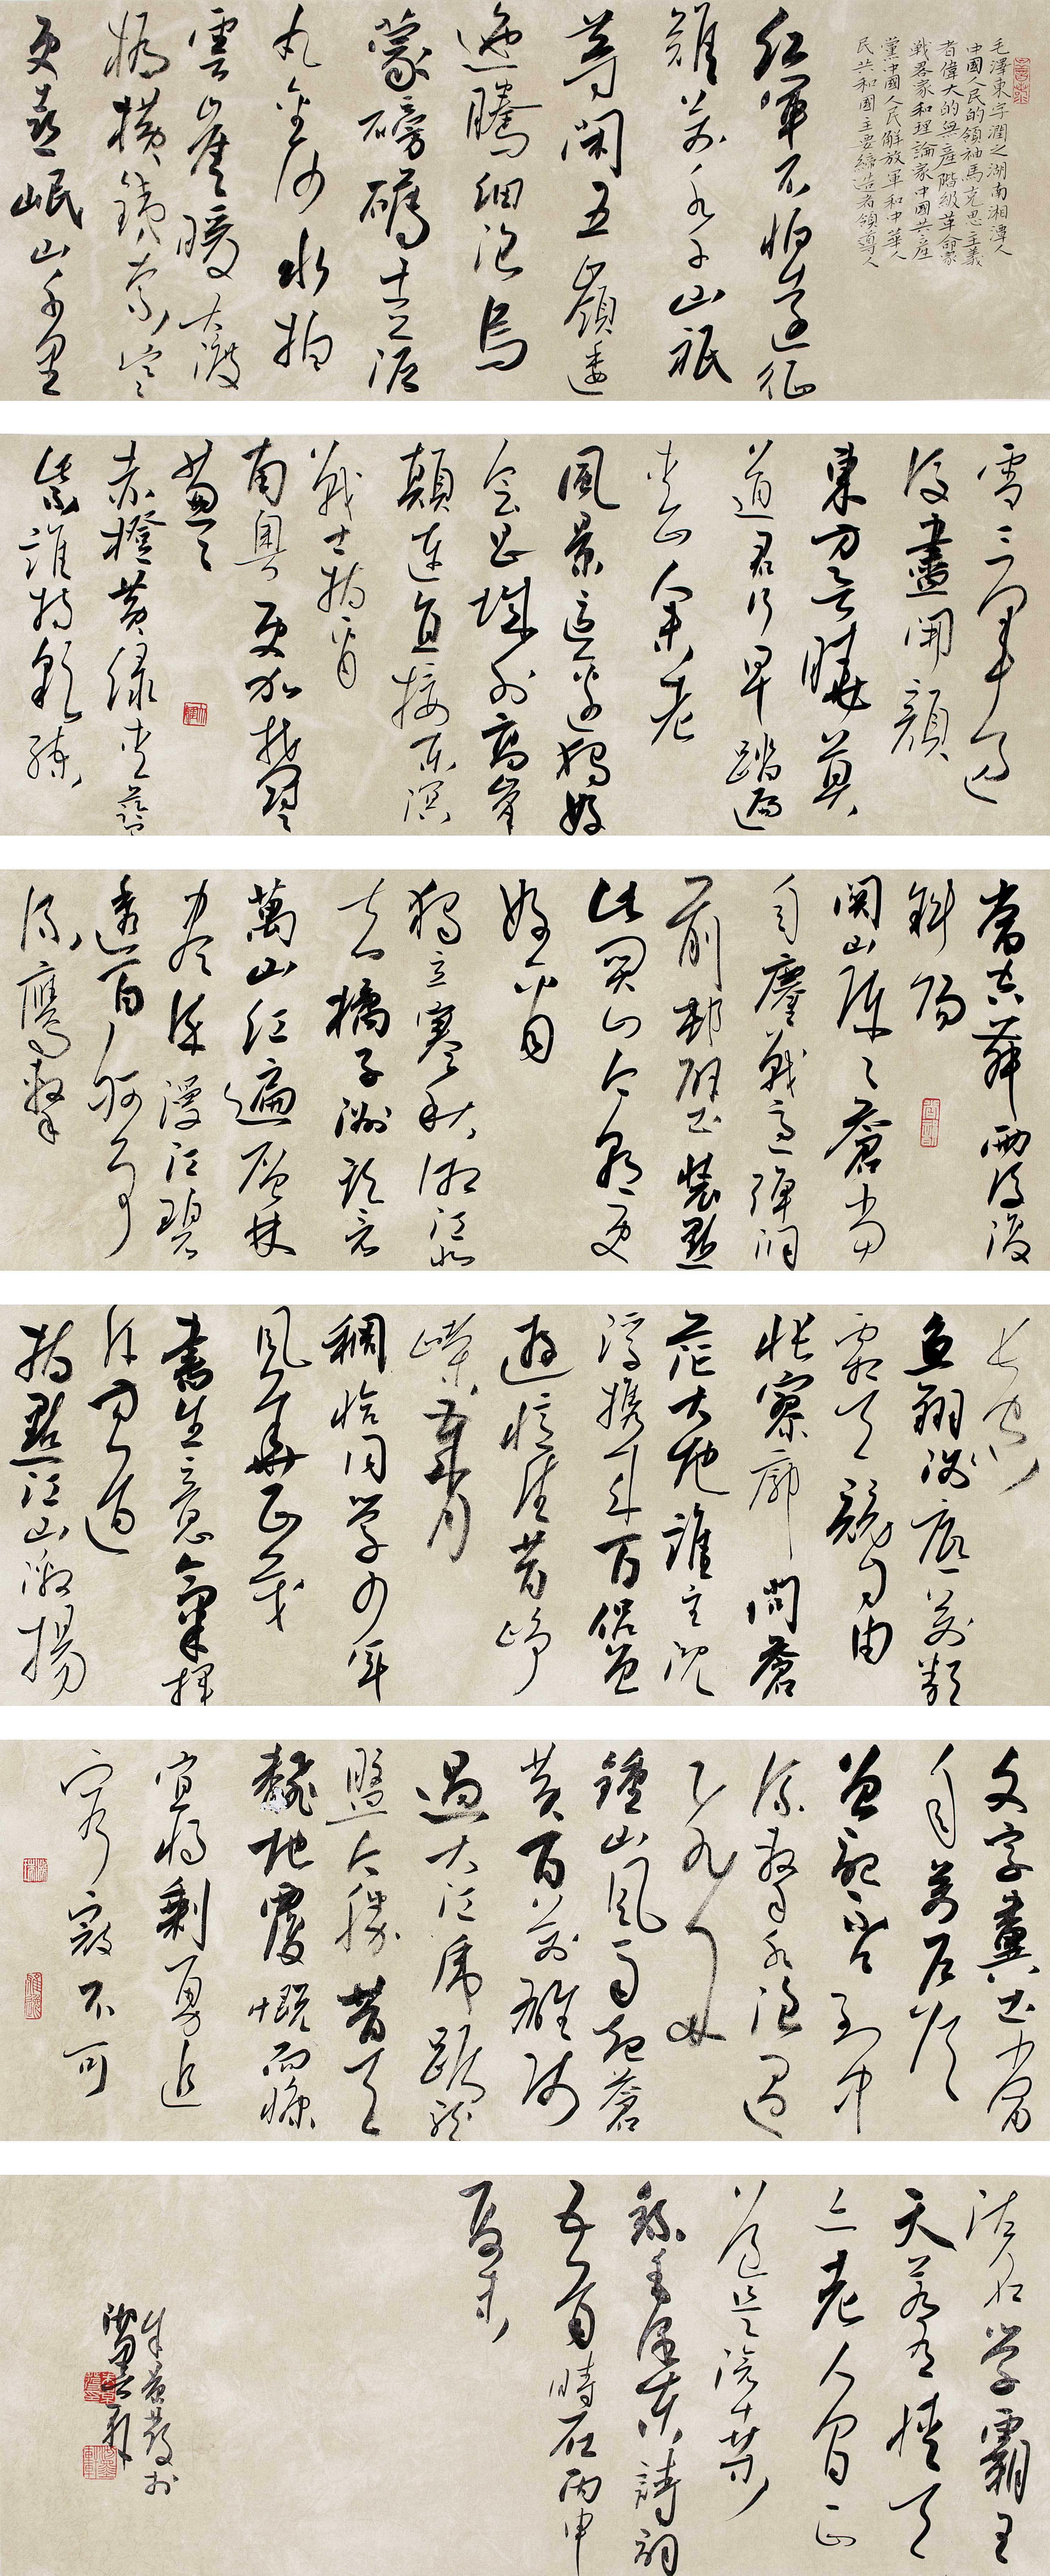 毛澤東字潤之湖南湘潭人
中國人民的領袖馬克思主義
者偉大的無產階級革命家
戰略家和理論家中國共產
黨中國人民解放軍和中華人
民共和國主要締造者領導人
紅軍不怕遠征
難萬水千山祇
等閑五嶺逶
迤騰細浪烏
蒙磅礴走泥
丸金沙水拍
雲崖暖大渡
橋橫鐵索寒
更喜岷山千里
雪三軍過
後盡開顏
東方欲曉莫
道君行早踏遍
青山人未老
風景這邊獨好
會昌城外高峰
顛連直接東溟
戰士指看
南粵更加鬱
蔥蔥
赤橙黃綠青藍
紫誰持彩練
當空舞雨後復
斜陽
關山陣陣蒼當
年鏖戰急彈洞
前村壁裝點
此關山今朝更
好看
獨立寒秋湘江北
去橘子洲頭看
萬山紅遍層林
盡染漫江碧
透百舸爭
流鷹擊
長空
魚翔淺底萬類
霜天競自由
悵寥廓問蒼
茫大地誰主沉
浮攜來百侶曾
遊憶往昔崢
嶸歲月
稠恰同學少年
風華正茂
書生意氣揮
斥方遒
指點江山激揚
文字糞土當
年萬戶侯
曾記否到中
流擊水浪遏
飛舟
鍾山風雨起蒼
黃百萬雄師
過大江虎踞龍
盤今勝昔天
翻地覆慨而慷
宜將剩勇追
窮寇不可
沽名學霸王
天若有情天
亦老人間正
道是滄桑
錄毛澤東詩詞
五首時在丙申
夏月